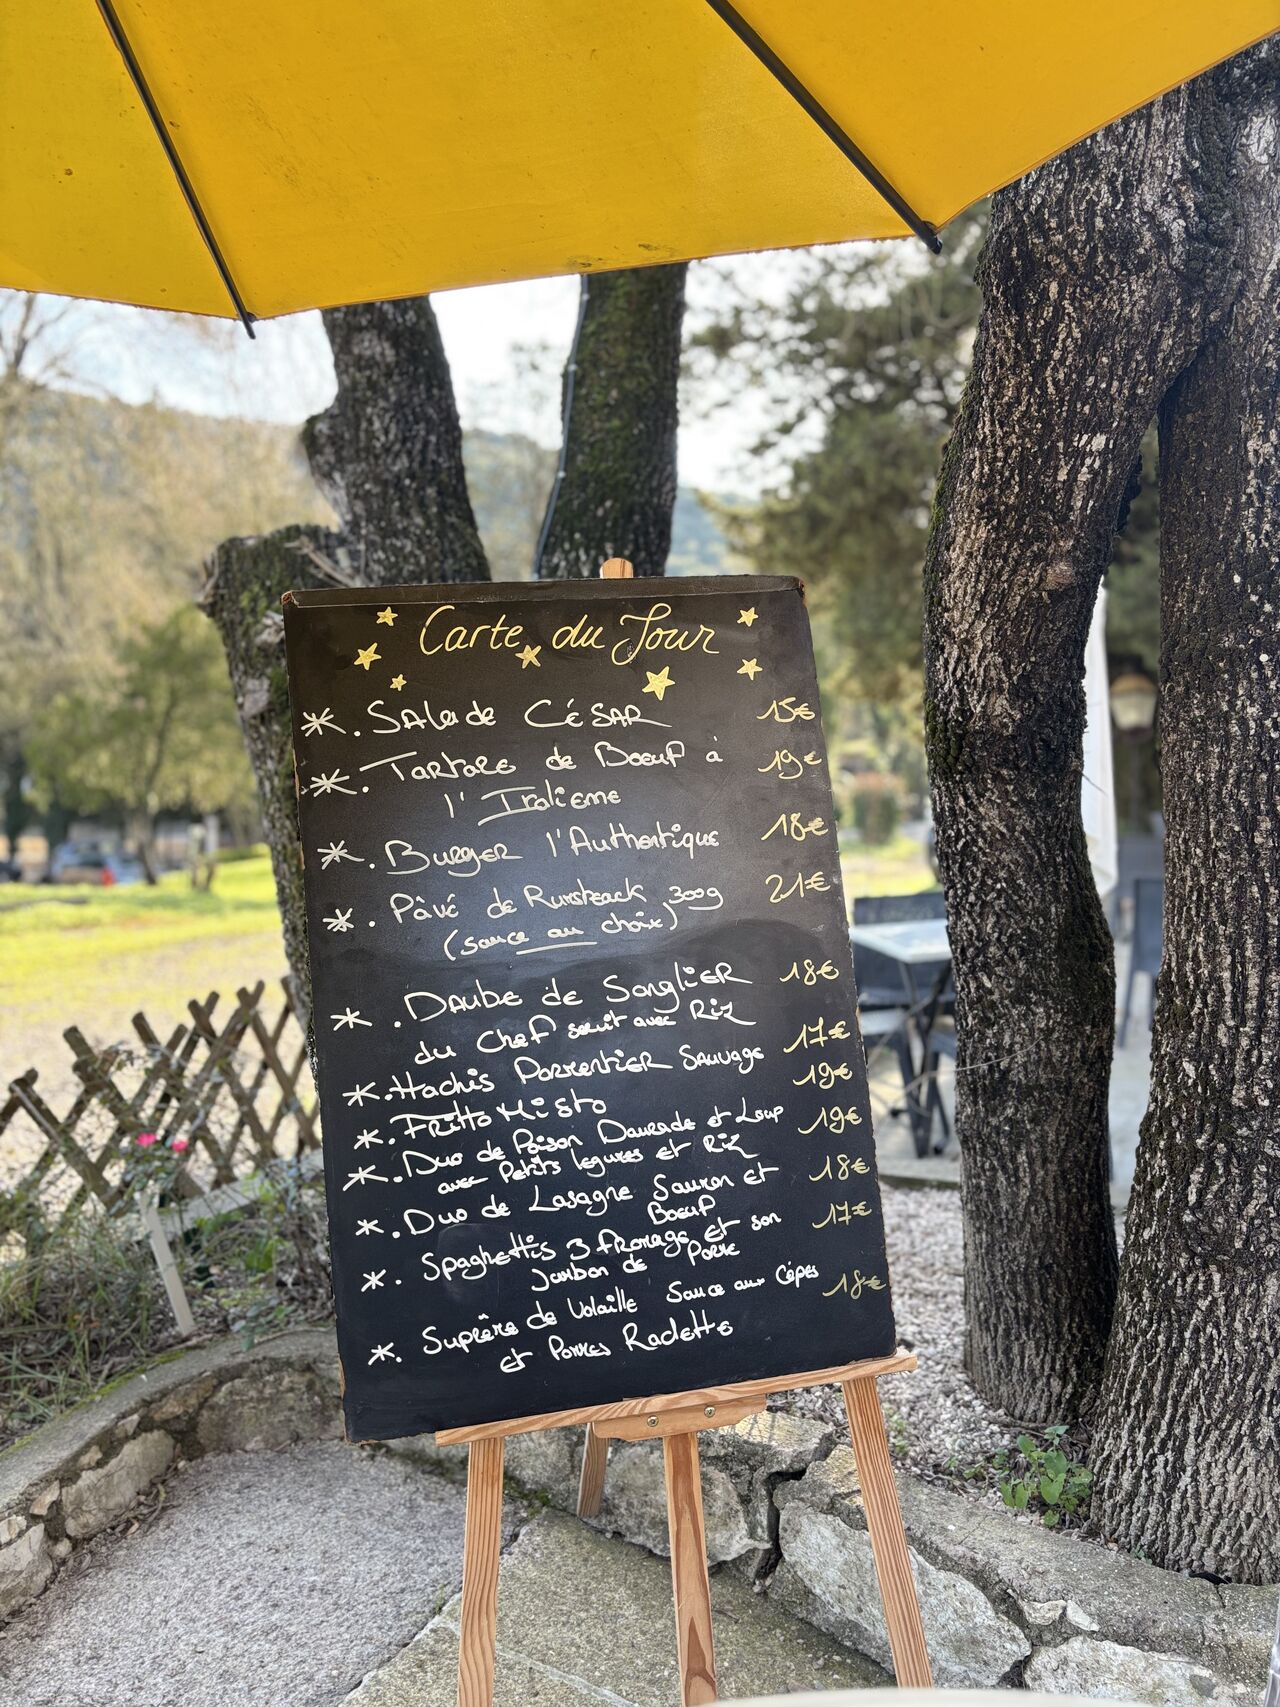 Carte du Jour
*. Salade César 15€
*. Tartare de Boeuf à 19€
l'Italienne
*. Burger l'Authentique 18€
*. Pâvé de Rumsteack 300g 21€
(sauce au choix)
*. Daube de Sanglier 18€
du Chef servit avec Riz
*. Hachis Parmentier Sauvage 17€
*. Fritto Misto 19€
*. Duo de Poison Daurade et Loup 19€
avec Petits legumes et Riz
*. Duo de Lasagne Saumon et 18€
Boeuf
*. Spaghettis 3 fromage et son 17€
Jambon de Parme
*. Suprême de Volaille Sauce aux Cépes 18€
et Pommes Raclette